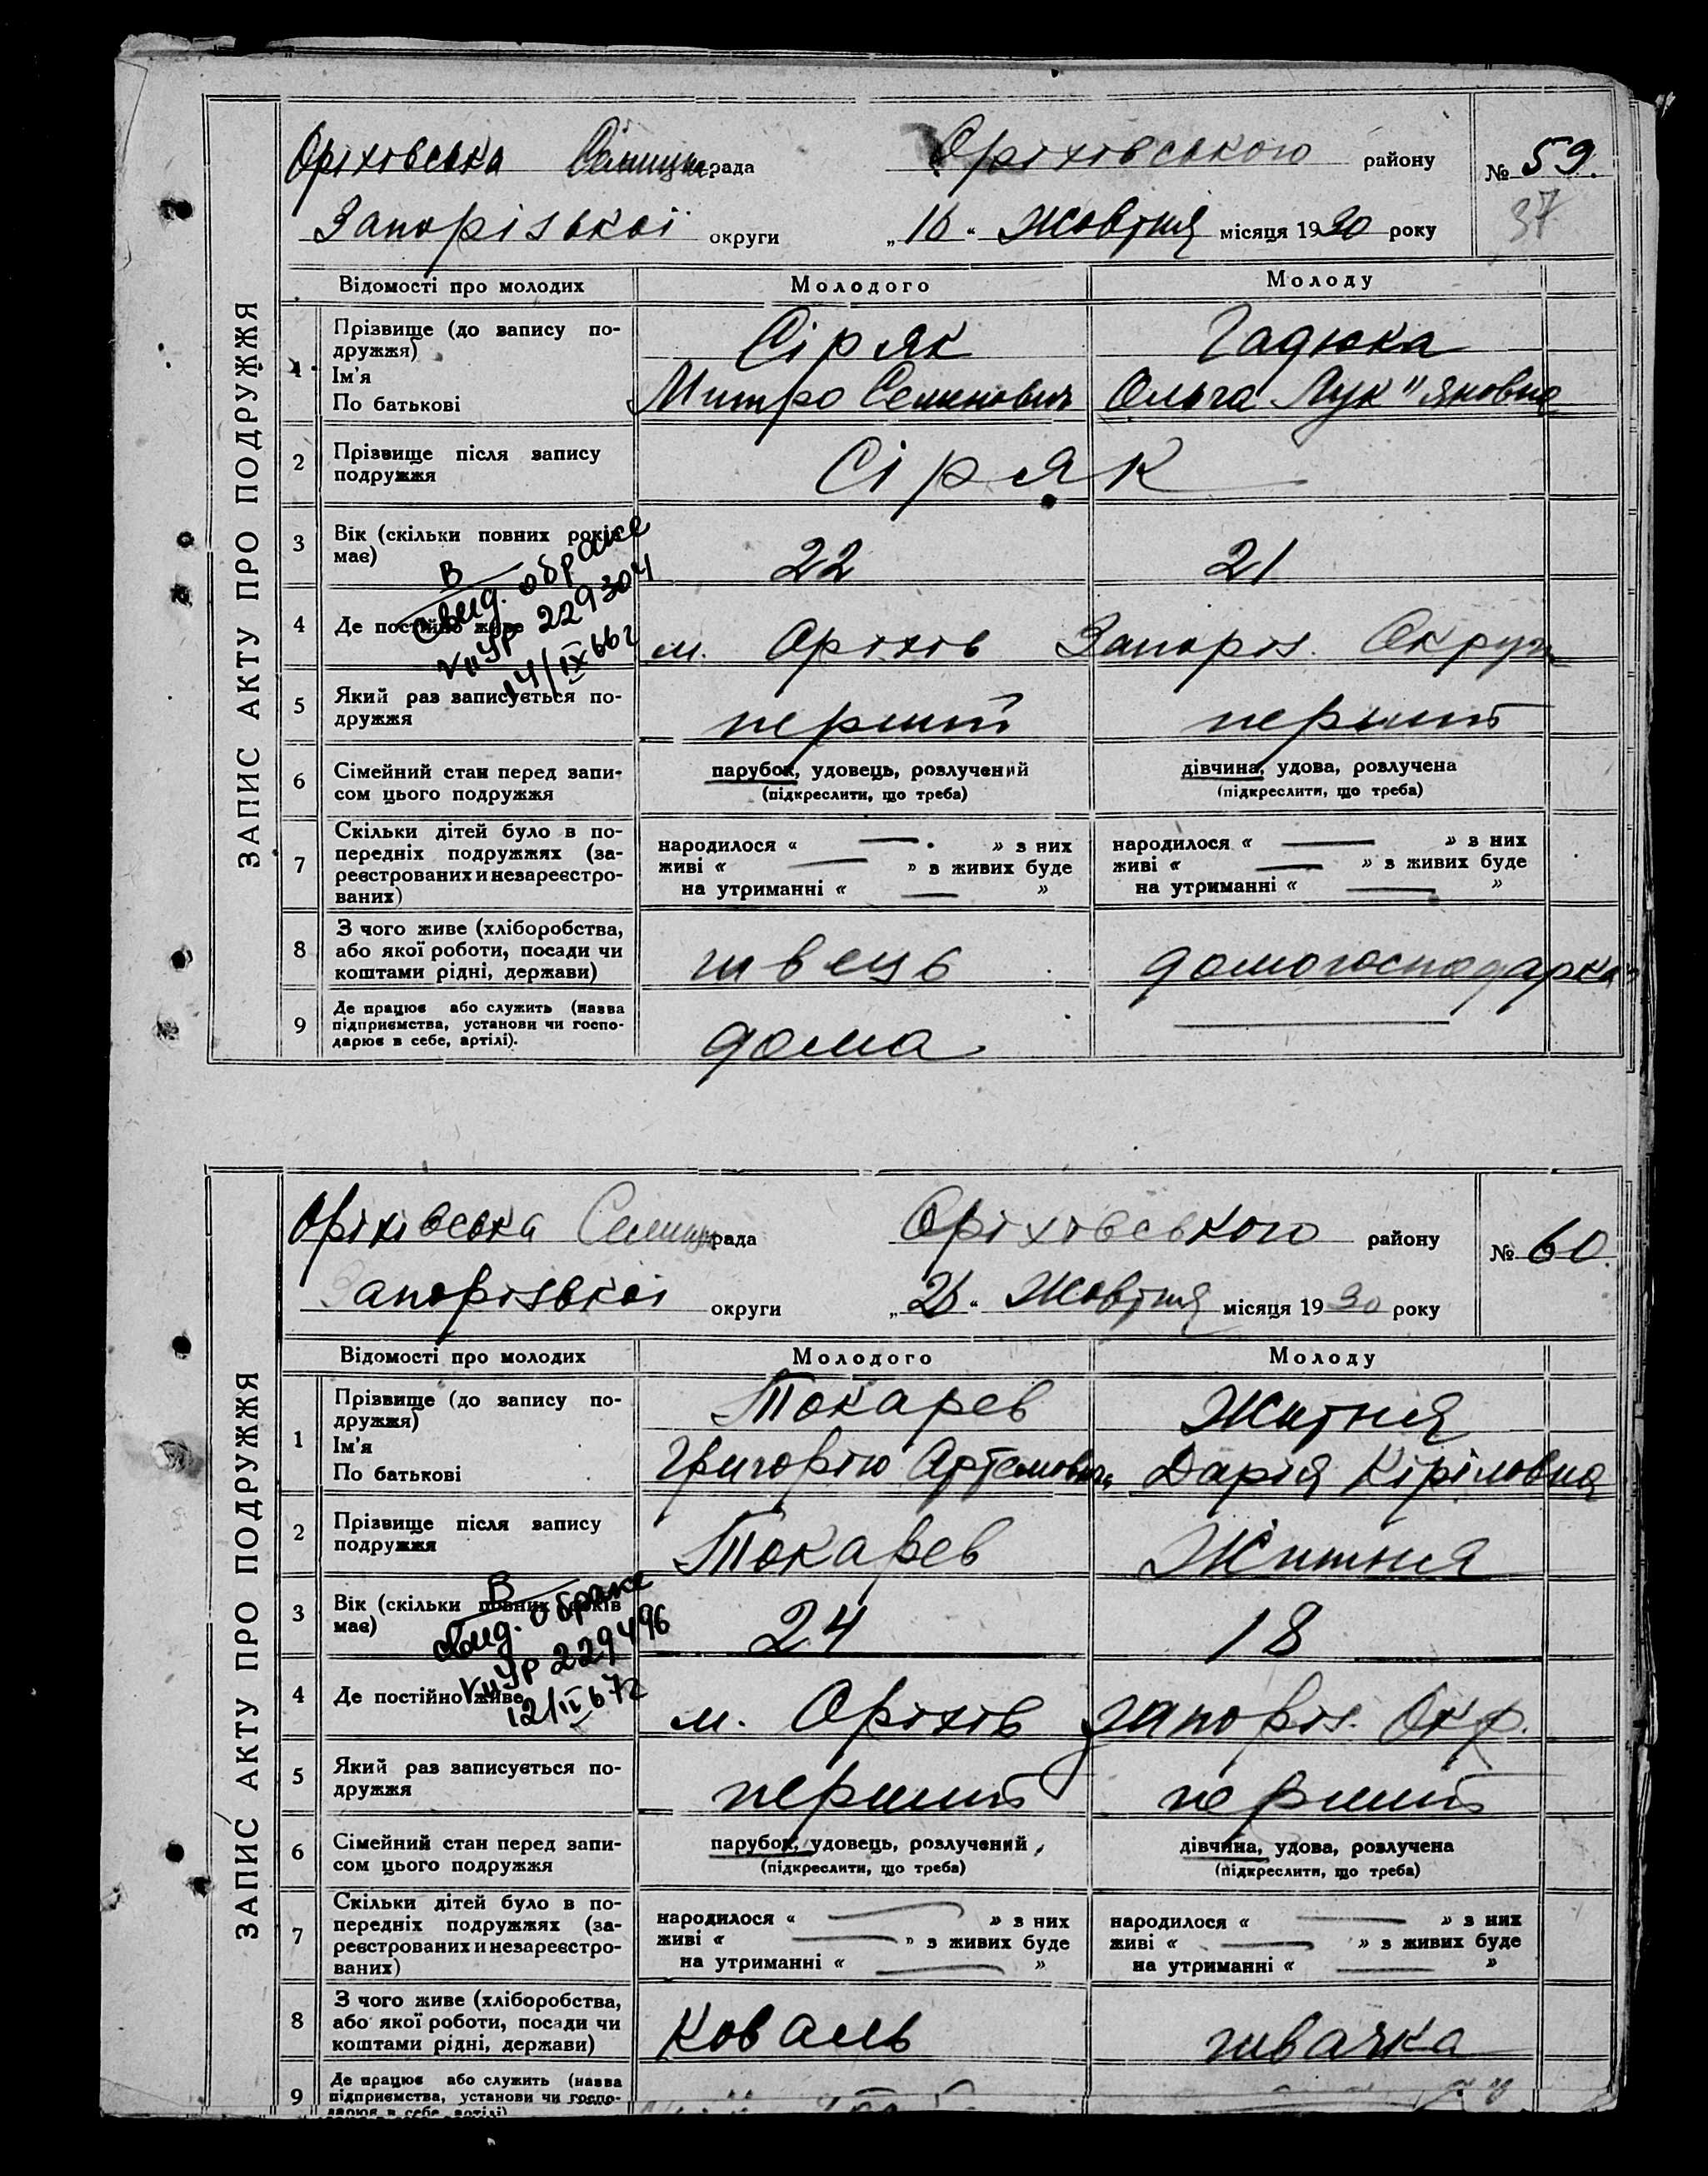 ЗАПИС АКТУ ПРО ПОДРУЖЖЯ
Оріхівська Селищна рада Оріхівського району № 59.
37
Запорізької округи „16“ Жовтня місяця 1930 року
Відомості про молодих Молодого Молоду
1 Прізвище (до запису по-
дружжя) Сіряк Гадюка
Ім'я
По батькові Митро Семенович Ольга Лук"яновна
2 Прізвище після запису
подружжя Сіряк
3 Вік (скільки повних років
має) 22 21
В
свид. о браке
УР 229304
14/IX 66 г
4 Де постійно живе м. Оріхів Запоріз. Округи
5 Який раз записується по-
дружжя перший перший
6 Сімейний стан перед запи-
сом цього подружжя
парубок, удовець, розлучений дівчина, удова, розлучена
(підкреслити, що треба) (підкреслити, що треба)
7 Скільки дітей було в по-
передніх подружжях (за-
реєстрованих и незареєстро-
ваних)
народилося « — » з них народилося « — » з них
живі « — » з живих буде живі « — » з живих буде
на утриманні « — » на утриманні « — »
8 З чого живе (хліборобства,
або якої роботи, посади чи
коштами рідні, держави) швець домогосподарка
9 Де працює або служить (назва
підприємства, установи чи госпо-
дарює в себе, артілі). дома —
ЗАПИС АКТУ ПРО ПОДРУЖЖЯ
Оріхівська Селищна рада Оріхівського району № 60.
Запорізької округи Жовтня місяця 1930 року
Відомості про молодих Молодого Молоду
1 Прізвище (до запису по-
дружжя) Токарев Житня
Ім'я
По батькові Григорію Артемович Дарія Кіріловна
2 Прізвище після запису
подружжя Токарев Житня
3 Вік (скільки повних років
має) 24 18
В
свид. о браке
УР 229496
12/II 67 г
4 Де постійно живе м. Оріхів Запоріз. Окр.
5 Який раз записується по-
дружжя перший перший
6 Сімейний стан перед запи-
сом цього подружжя
парубок, удовець, розлучений дівчина, удова, розлучена
(підкреслити, що треба) (підкреслити, що треба)
7 Скільки дітей було в по-
передніх подружжях (за-
реєстрованих и незареєстро-
ваних)
народилося « — » з них народилося « — » з них
живі « — » з живих буде живі « — » з живих буде
на утриманні « — » на утриманні « — »
8 З чого живе (хліборобства,
або якої роботи, посади чи
коштами рідні, держави) Коваль швачка
9 Де працює або служить (назва
підприємства, установи чи госпо-
дарює в себе, артілі)